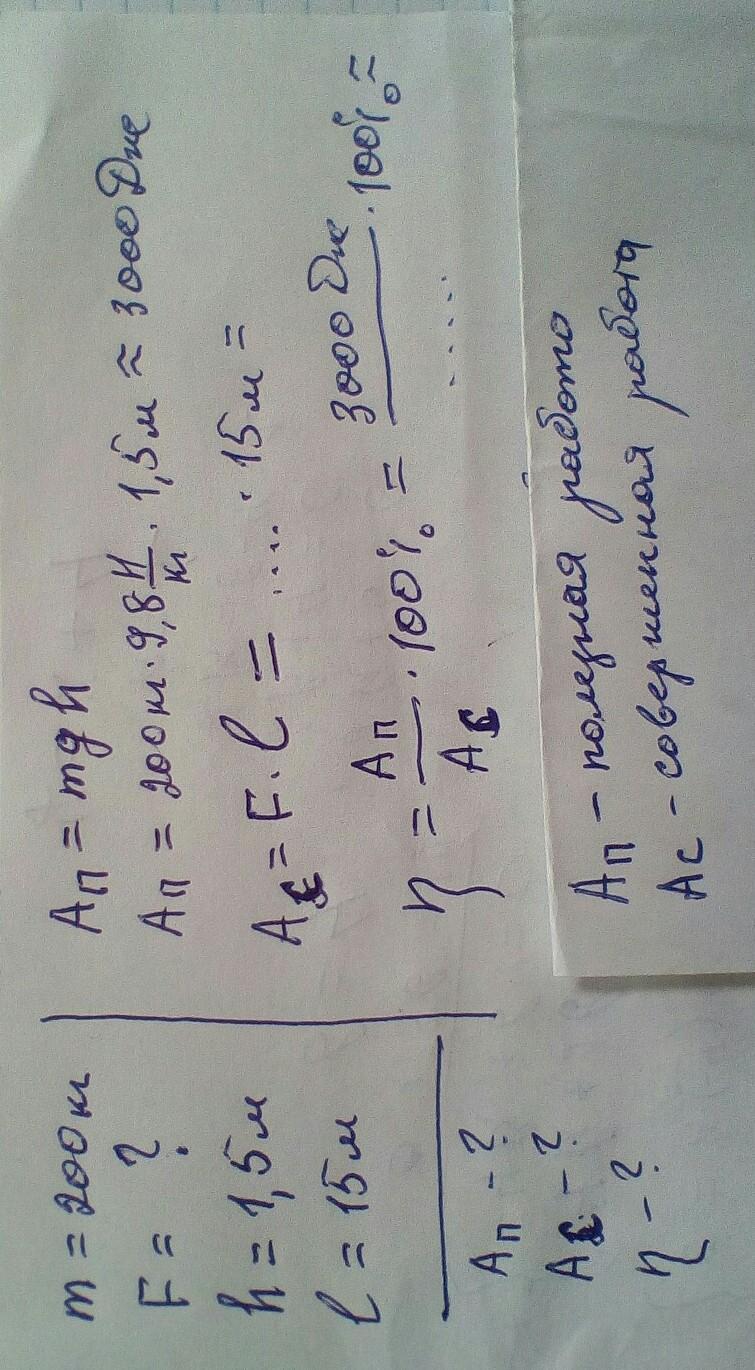 m = 200 кг
F = ?
h = 1,5 м
l = 15 м
Aп - ?
Aс - ?
η - ?
Aп = mgh
Aп = 200 кг · 9,8 Н/кг · 1,5 м ≈ 3000 Дж
Aс = F · l = .... · 15 м =
η = Aп/Aс · 100% = 3000 Дж/..... · 100% =
Aп - полезная работа
Aс - совершенная работа